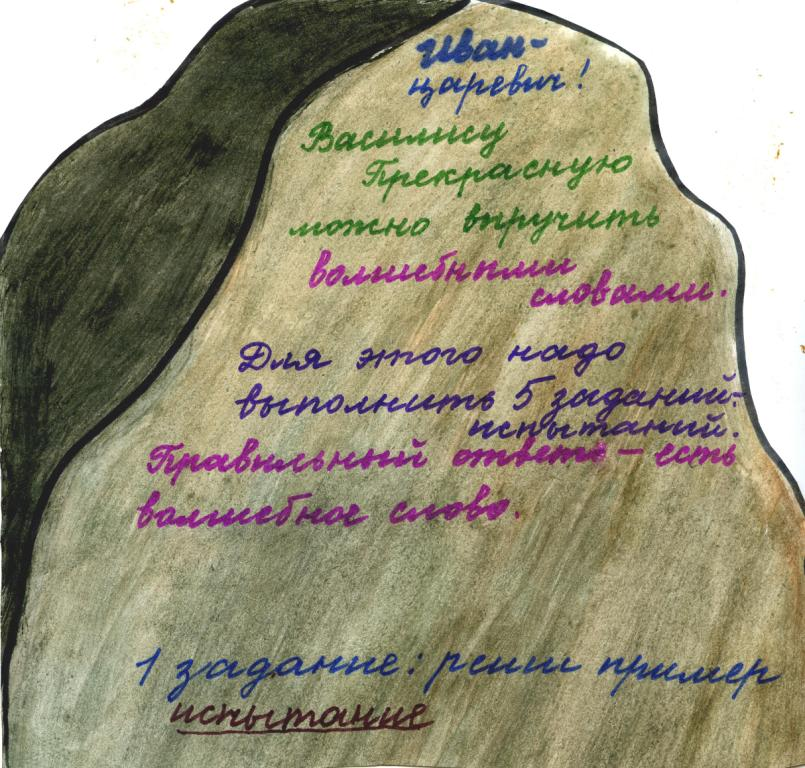 Иван-
царевич!
Василису
Прекрасную
можно выручить
волшебными
словами.
Для этого надо
выполнить 5 заданий-
испытаний.
Правильный ответ — есть
волшебное слово.
1 задание: реши пример
испытание